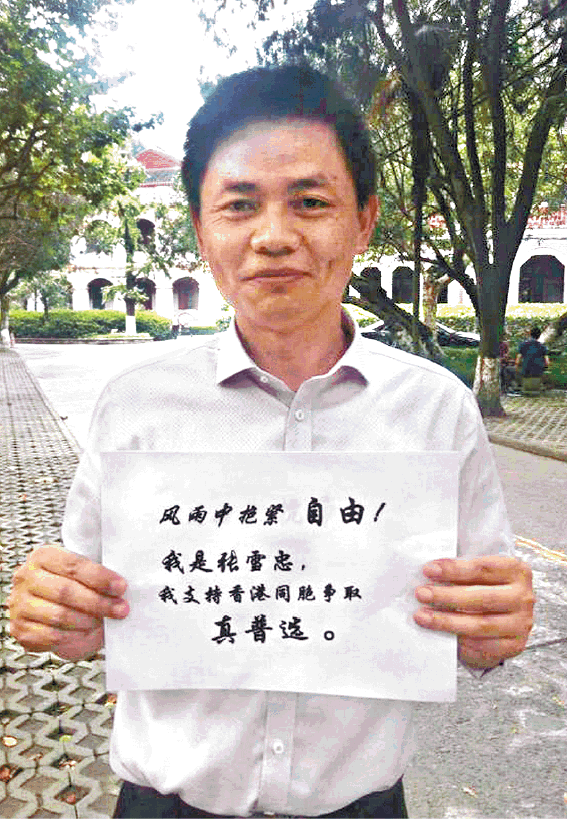 风雨中抱紧自由!
我是张雪忠,
我支持香港同胞争取
真普选。